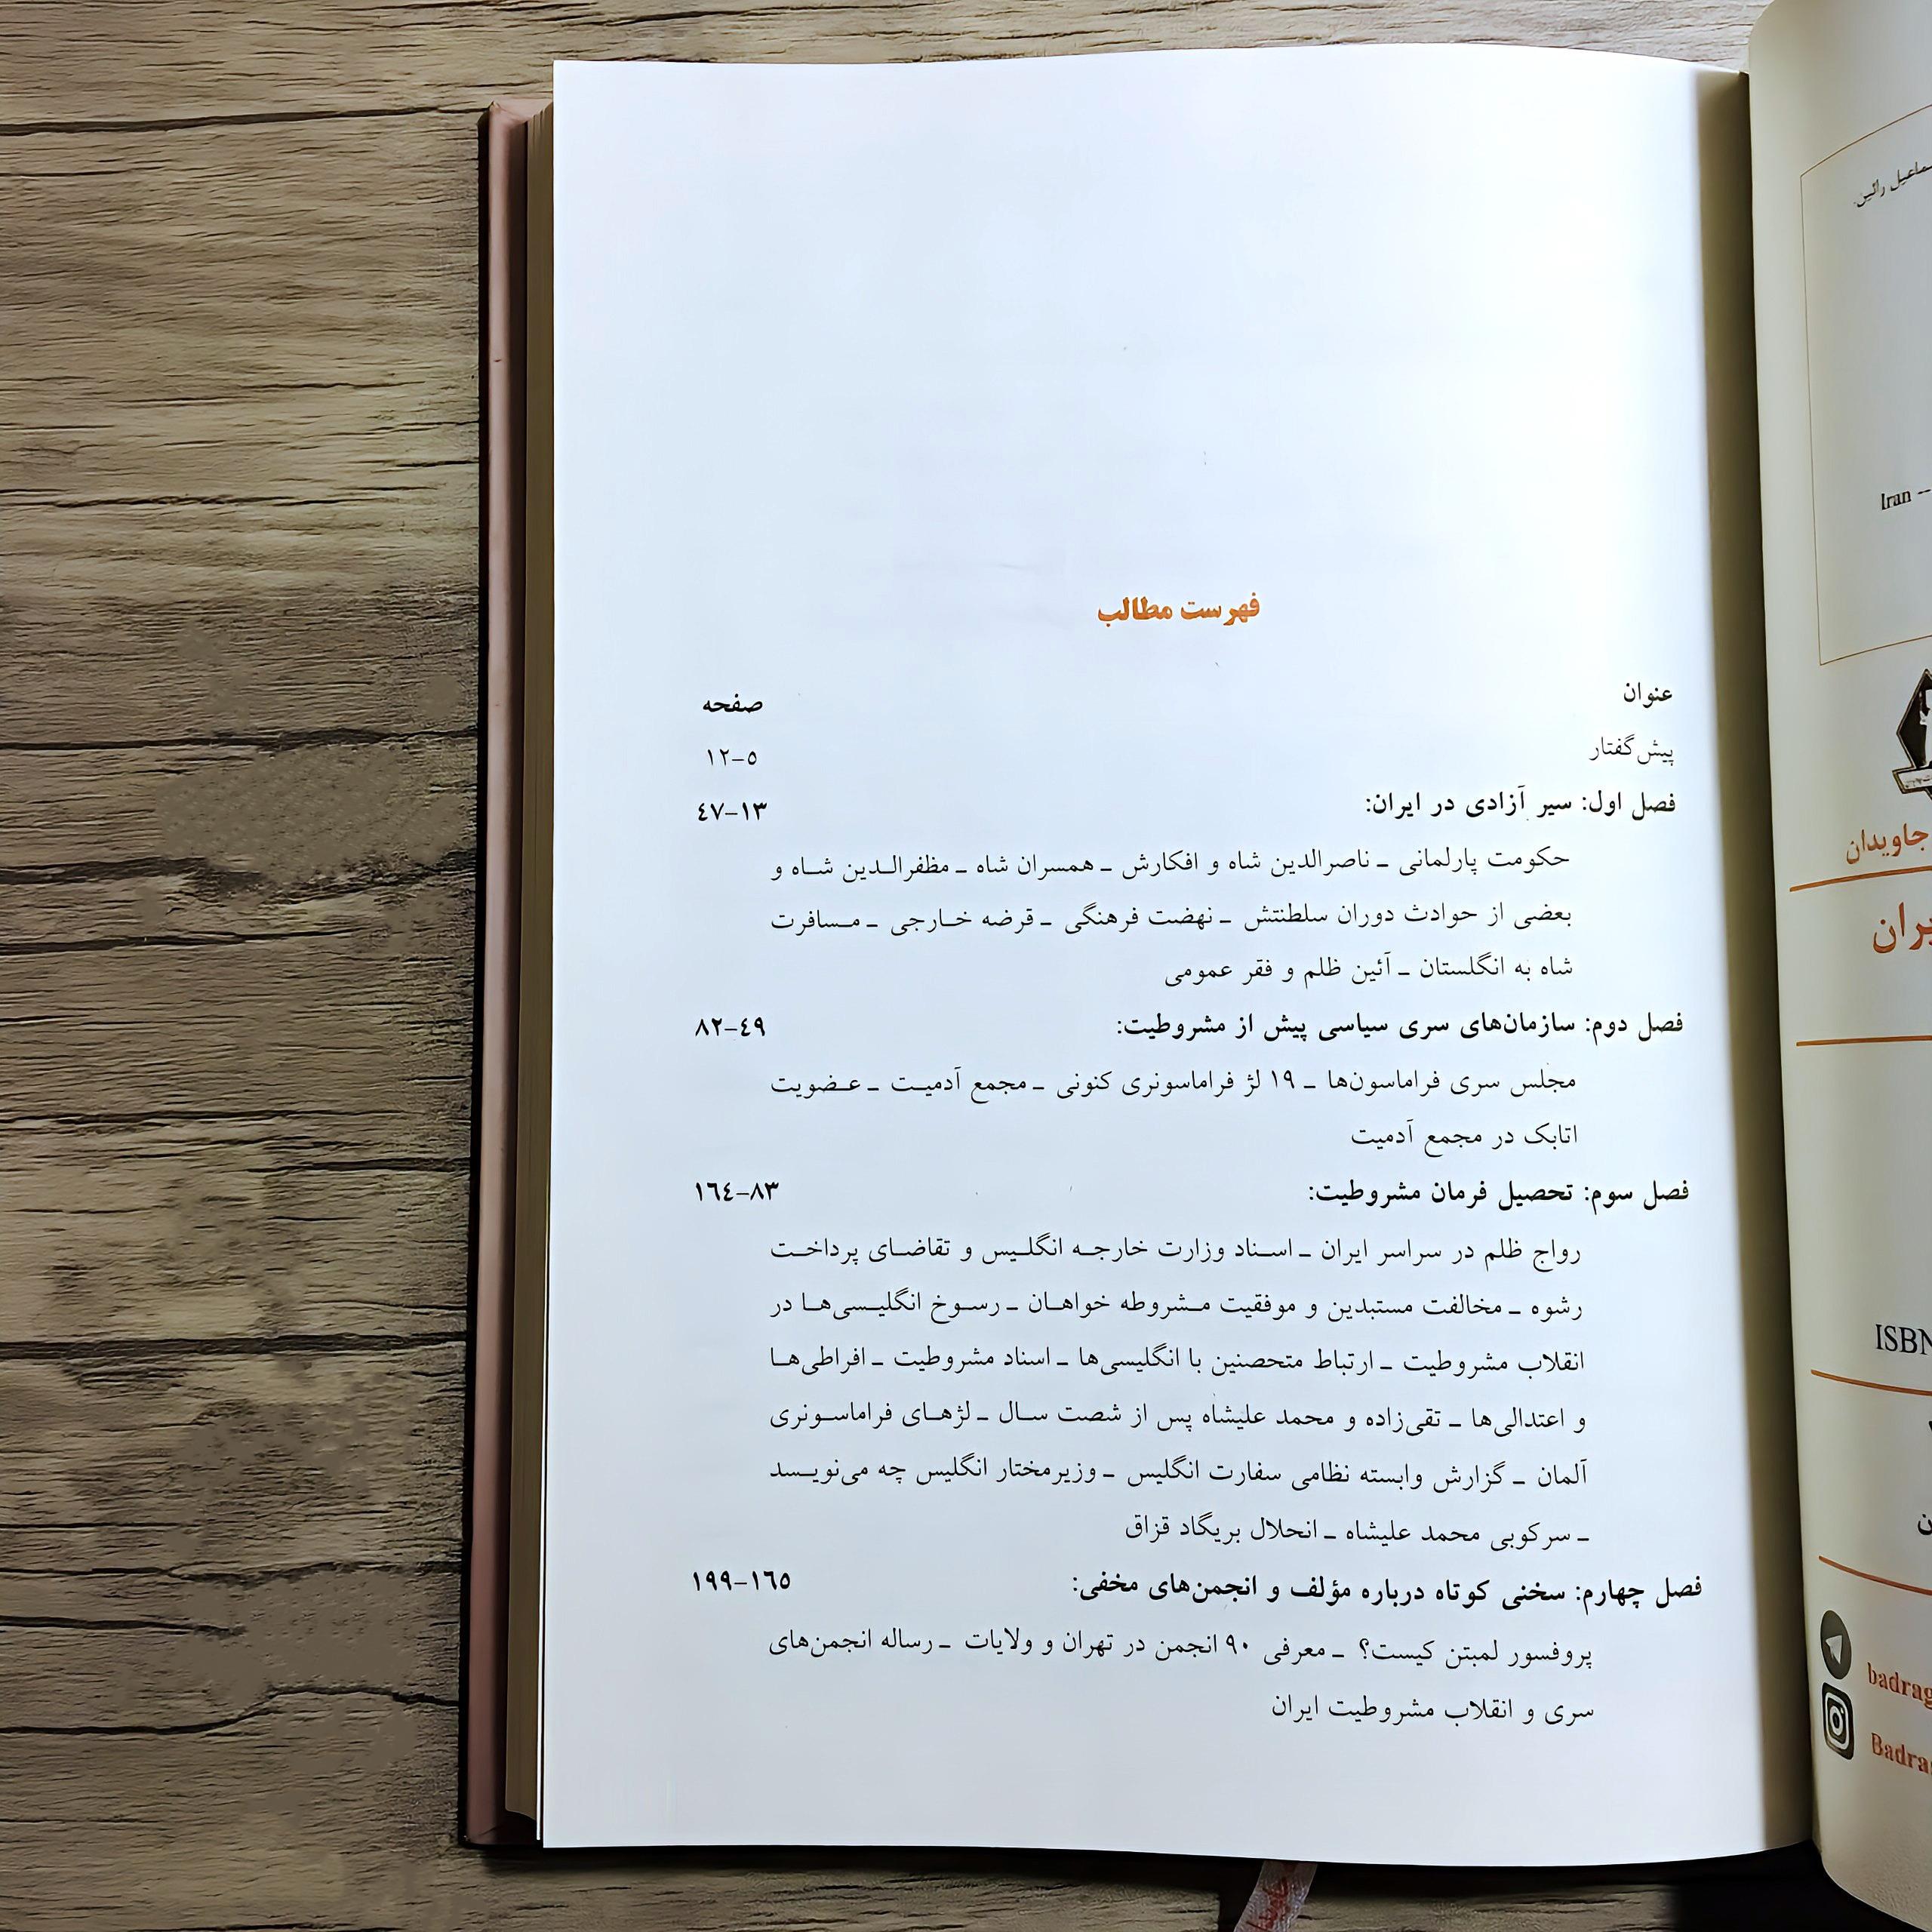 فهرست مطالب
عنوان صفحه
پیش‌گفتار ۵–۱۲
فصل اول: سیر آزادی در ایران: ۱۳–٤۷
حکومت پارلمانی ـ ناصرالدین شاه و افکارش ـ همسران شاه ـ مظفرالـدین شـاه و
بعضی از حوادث دوران سلطنتش ـ نهضت فرهنگی ـ قرضه خـارجی ـ مـسافرت
شاه به انگلستان ـ آئین ظلم و فقر عمومی
فصل دوم: سازمان‌های سری سیاسی پیش از مشروطیت: ٤۹–۸۲
مجلس سری فراماسون‌ها ـ ۱۹ لژ فراماسونری کنونی ـ مجمع آدمیـت ـ عـضویت
اتابک در مجمع آدمیت
فصل سوم: تحصیل فرمان مشروطیت: ۸۳–۱٦٤
رواج ظلم در سراسر ایران ـ اسـناد وزارت خارجـه انگلـیس و تقاضـای پرداخـت
رشوه ـ مخالفت مستبدین و موفقیت مـشروطه خواهـان ـ رسـوخ انگلیـسی‌هـا در
انقلاب مشروطیت ـ ارتباط متحصنین با انگلیسی‌ها ـ اسناد مشروطیت ـ افراطی‌هـا
و اعتدالی‌ها ـ تقی‌زاده و محمد علیشاه پس از شصت سـال ـ لژهـای فراماسـونری
آلمان ـ گزارش وابسته نظامی سفارت انگلیس ـ وزیرمختار انگلیس چه می‌نویـسد
ـ سرکوبی محمد علیشاه ـ انحلال بریگاد قزاق
فصل چهارم: سخنی کوتاه درباره مؤلف و انجمن‌های مخفی: ۱٦۵–۱۹۹
پروفسور لمبتن کیست؟ ـ معرفی ۹۰ انجمن در تهران و ولایات ـ رساله انجمن‌های
سری و انقلاب مشروطیت ایران
رائین.
Iran --
جاویدان
ISBN